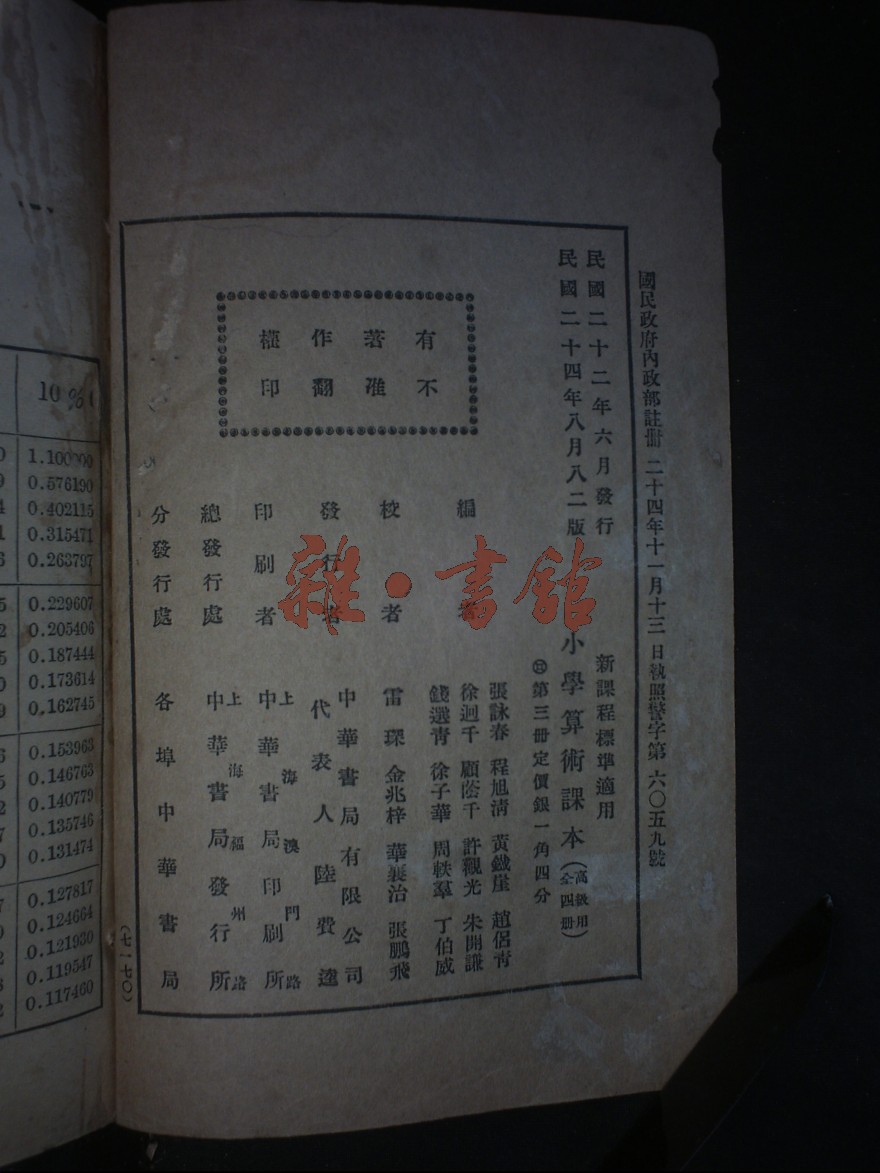 國民政府內政部註册 二十四年十一月十三日執照警字第六〇五九號
民國二十二年六月發行
民國二十四年八月八二版
新課程標準適用
小學算術課本(高級用 全四册)
第三册定價銀一角四分
有著作權
不准翻印
編 者
張詠春 程旭清 黃鐵崖 趙侶青
徐迥千 顧蔭千 許觀光 朱開謙
錢選青 徐子華 周軼羣 丁伯威
校者
雷琛 金兆梓 華襄治 張鵬飛
發行者
中華書局有限公司
代表人 陸費逵
印刷者
上海澳門路
中華書局印刷所
總發行處
上海福州路
中華書局發行所
分發行處
各埠中華書局
(七一七〇)
雜·書館
10 %
1.100000
0.576190
0.402115
0.315471
0.263797
0.229607
0.205406
0.187444
0.173614
0.162745
0.153963
0.146763
0.140779
0.135746
0.131474
0.127817
0.124664
0.121930
0.119547
0.117460